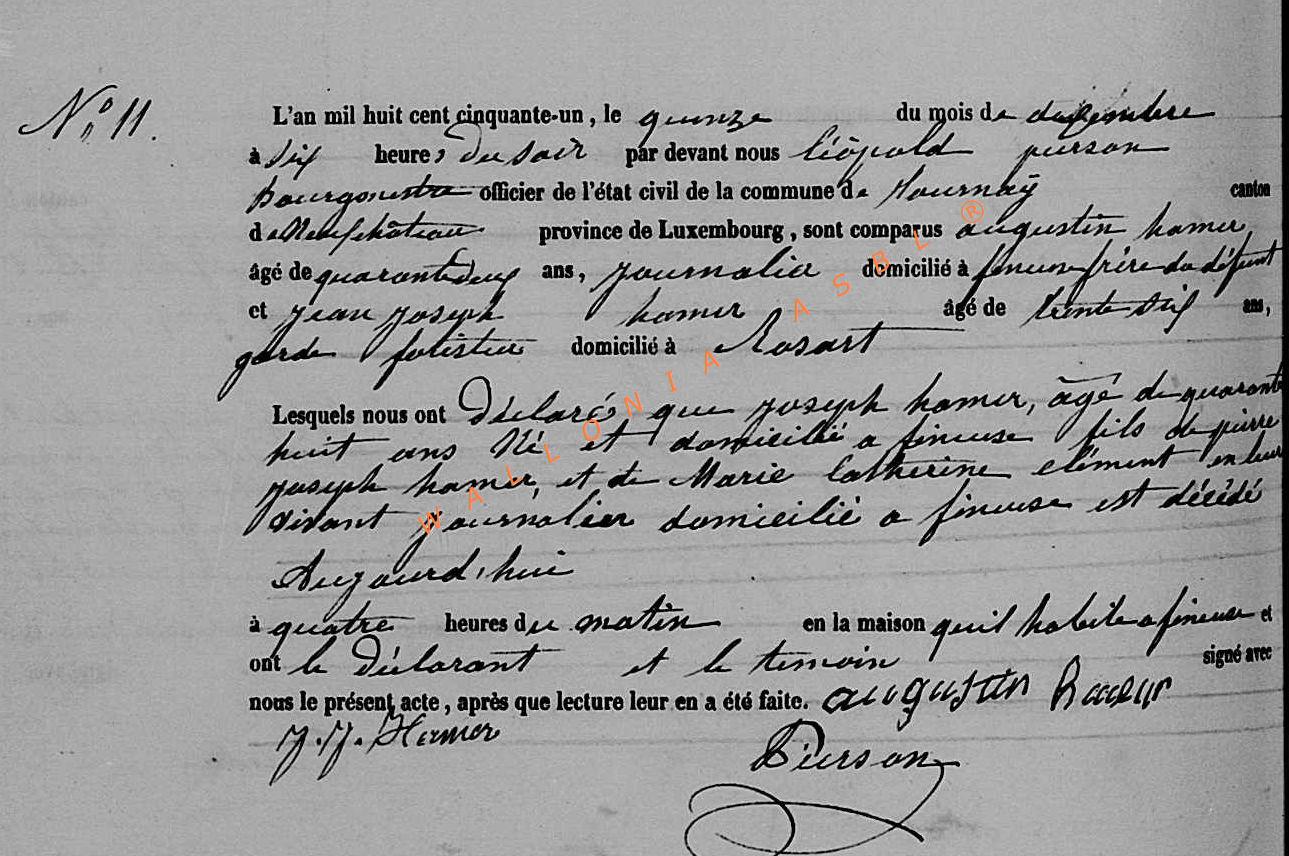 N° 11.
L'an mil huit cent cinquante-un, le quinze du mois de décembre
à six heures du soir par devant nous léopold pierson
bourgmestre officier de l'état civil de la commune de tournay canton
de Neufchâteau province de Luxembourg, sont comparus augustin hamer
âgé de quarante deux ans, journalier domicilié à fineuse frère du défunt
et jean joseph hamer âgé de trente six ans,
garde forestier domicilié à Rosart
Lesquels nous ont Déclaré, que joseph hamer, âgé de quarante
huit ans Né et domicilié a fineuse fils de pierre
joseph hamer, et de Marie Catherine clément en leur
vivant journalier domicilié a fineuse est décédé
Aujourd'hui
à quatre heures du matin en la maison quil habite a fineuse et
ont le Déclarant et le temoin signé avec
nous le présent acte, après que lecture leur en a été faite. augustin
J. J. Hamer
Pierson
WALLONIA ASBL ®